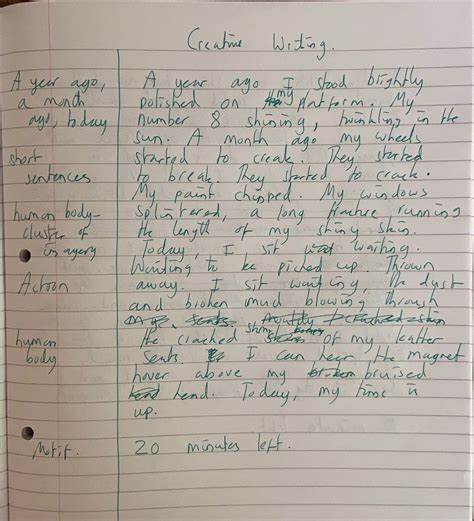 Creative Writing.
A year ago, A year ago I stood brightly
a month polished on my platform. My
ago, today number 8 shining, twinkling in the
sun. A month ago my wheels
short started to creak. They started
sentences to break. They started to crack.
My paint chipped. My windows
human body- splintered, a long fracture running
cluster of the length of my shiny skin.
imagery Today, I sit waiting.
Waiting to be picked up. Thrown
Action away. I sit waiting, the dust
and broken mud blowing through
human the cracked of my leather
body seats I can hear the magnet
hover above my bruised
head. Today, my time is
up.
Motif. 20 minutes left.